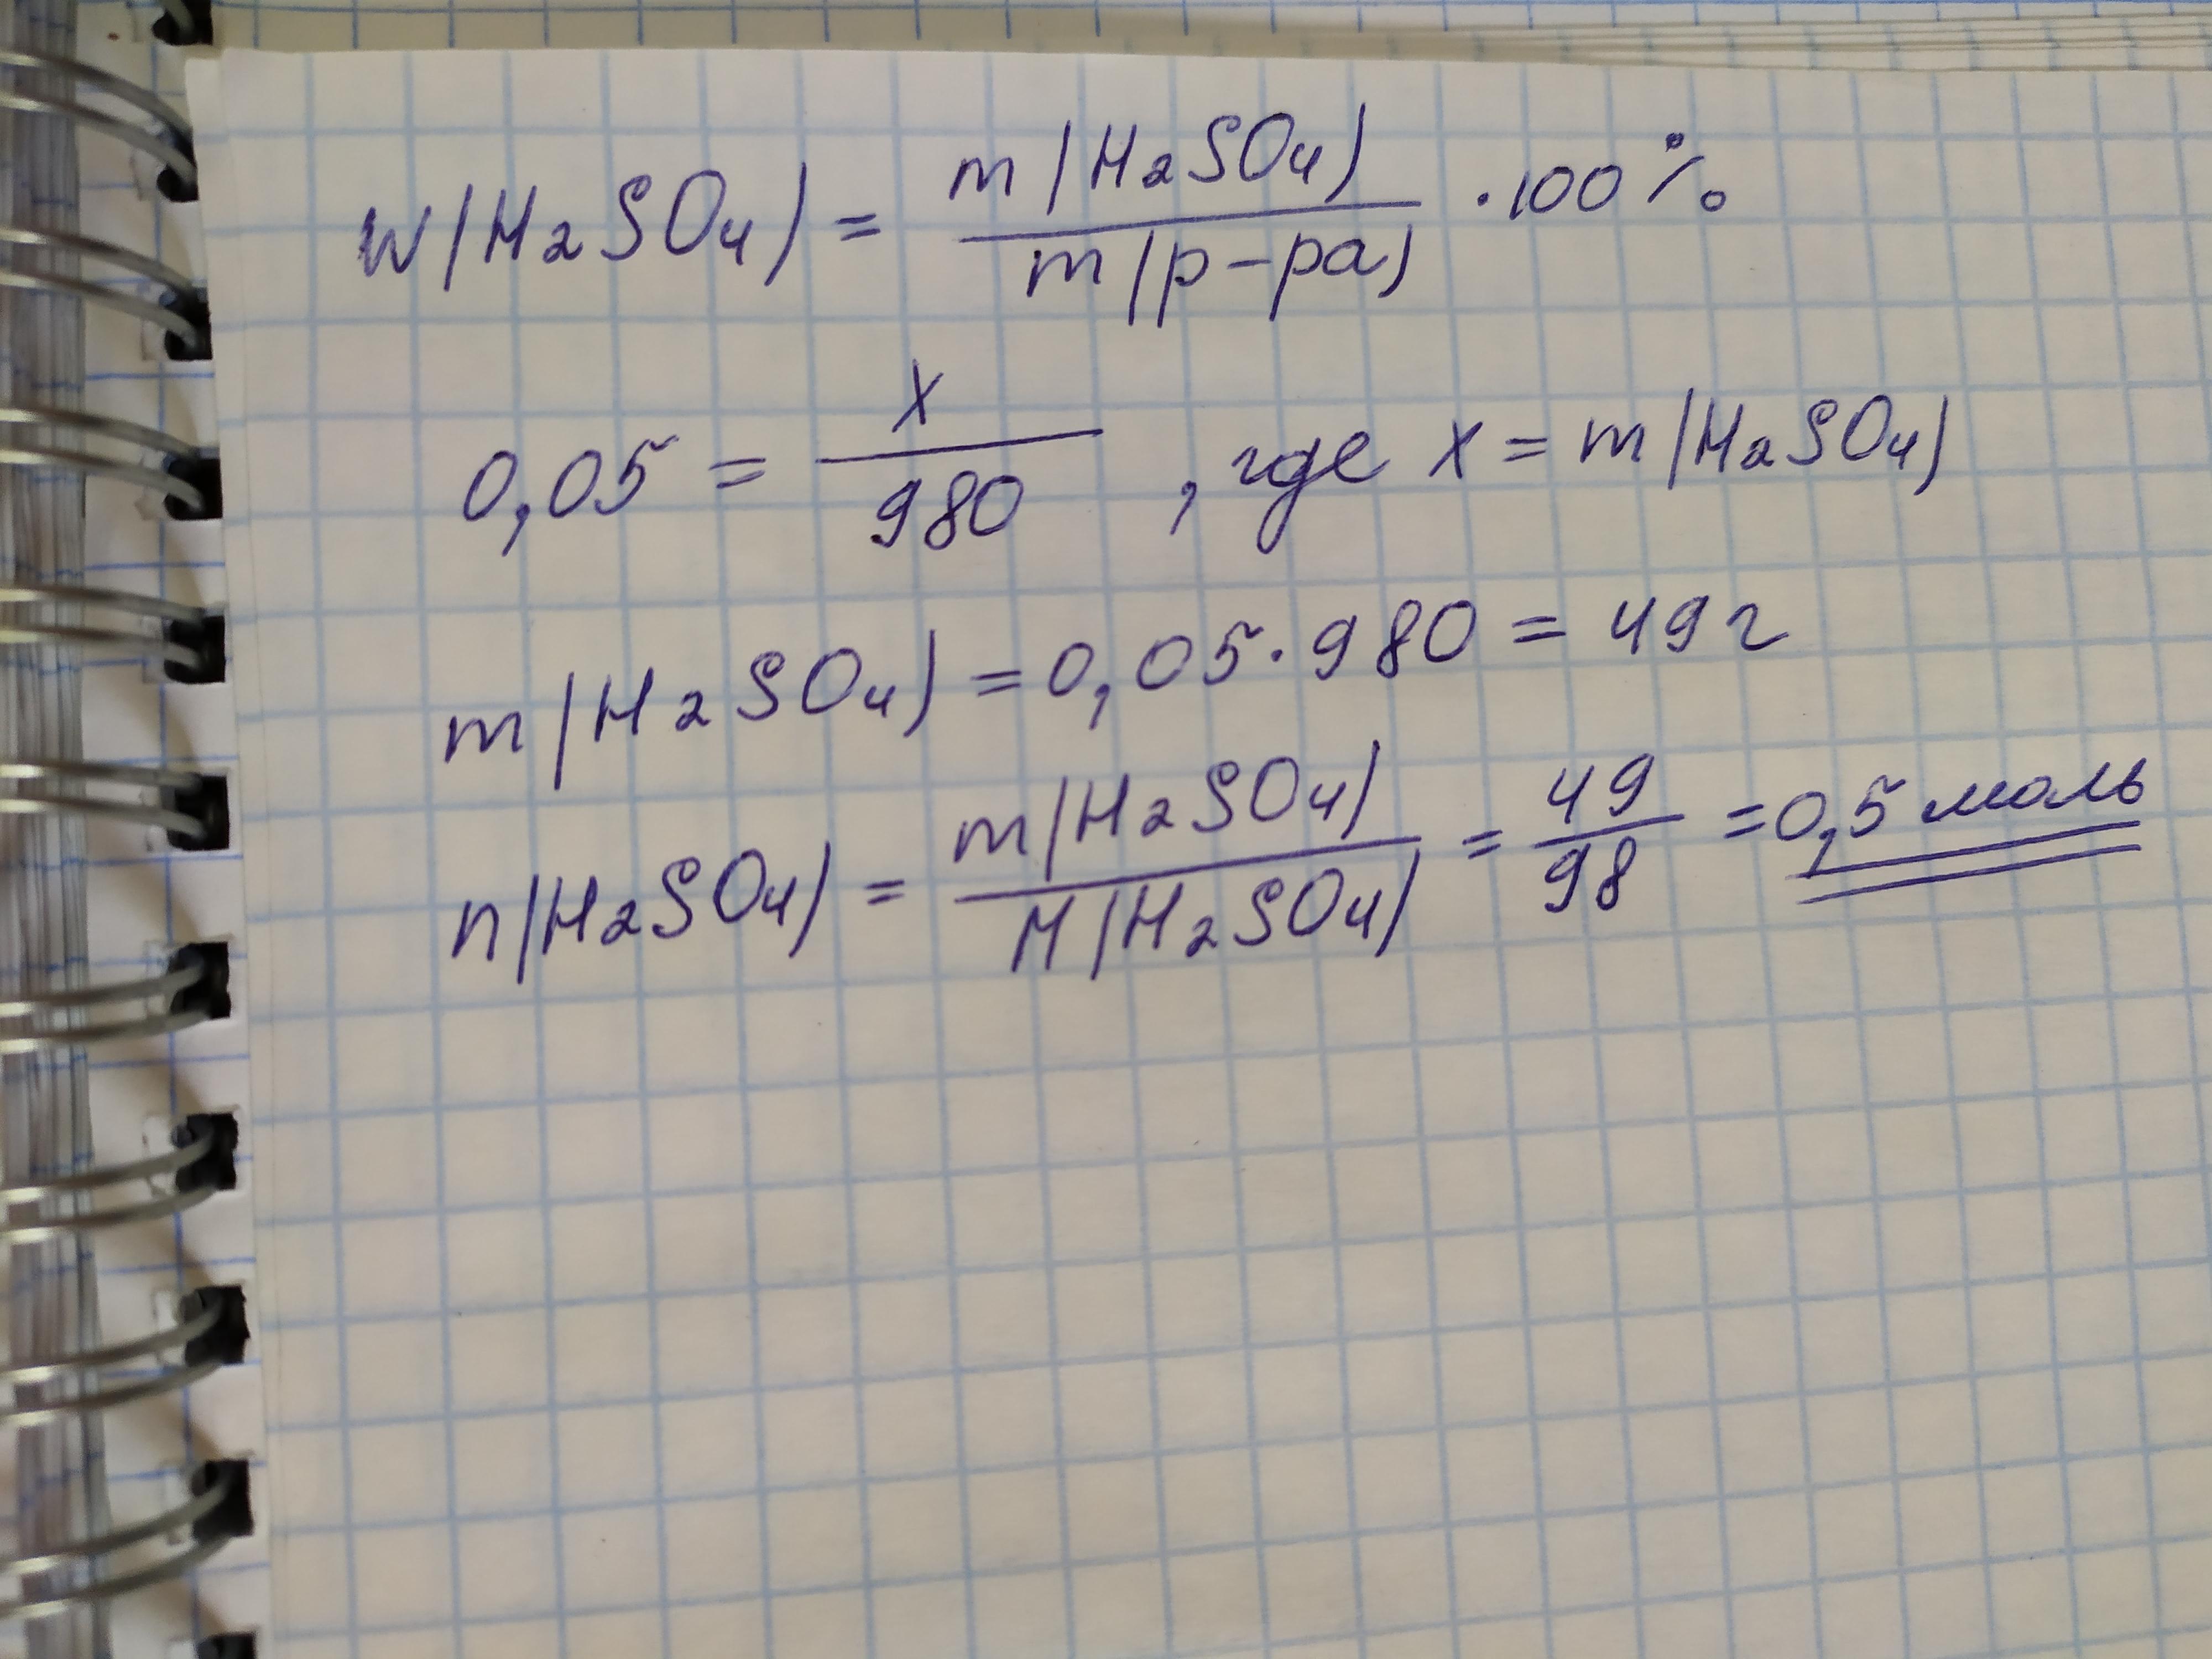 W(H₂SO₄) = m(H₂SO₄) / m(р-ра) · 100%
0,05 = x / 980 , где x = m(H₂SO₄)
m(H₂SO₄) = 0,05 · 980 = 49 г
n(H₂SO₄) = m(H₂SO₄) / M(H₂SO₄) = 49 / 98 = 0,5 моль